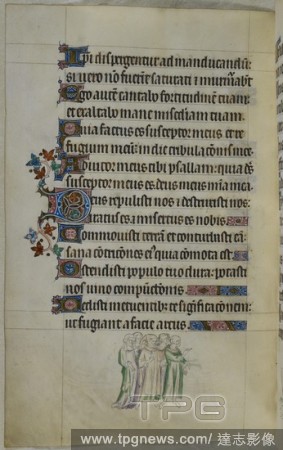 Ipi dispergentur ad manducandū:
si vero nō fuerīt saturati i murmabt̄
Ego autē cantabo fortitudinē tuam:
et exaltabo mane miscdiam tuam.
Quia factus es susceptor meus et re
fugium meū: in die tribulacōnis mee
Adiutor meus tibi psallam: quia deus
susceptor meus es: deus meus mia mea
Deus repulisti nos i destruxisti nos:
iratus es i misertus es nobis.
Commovisti terrā et conturbasti eā:
sana cōtriciones eius quia cōmota est
Ostendisti populo tuo dura: potasti
nos vino compūctionis.
Dedisti metuentibus te significacōnem:
ut fugiant a facie arcus.
TPG
www.tpgnews.com/達志影像